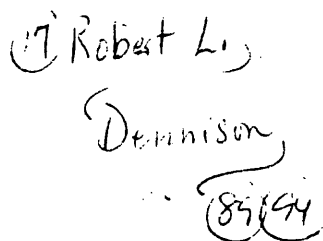 17 Robert L.
Dennison
89 94